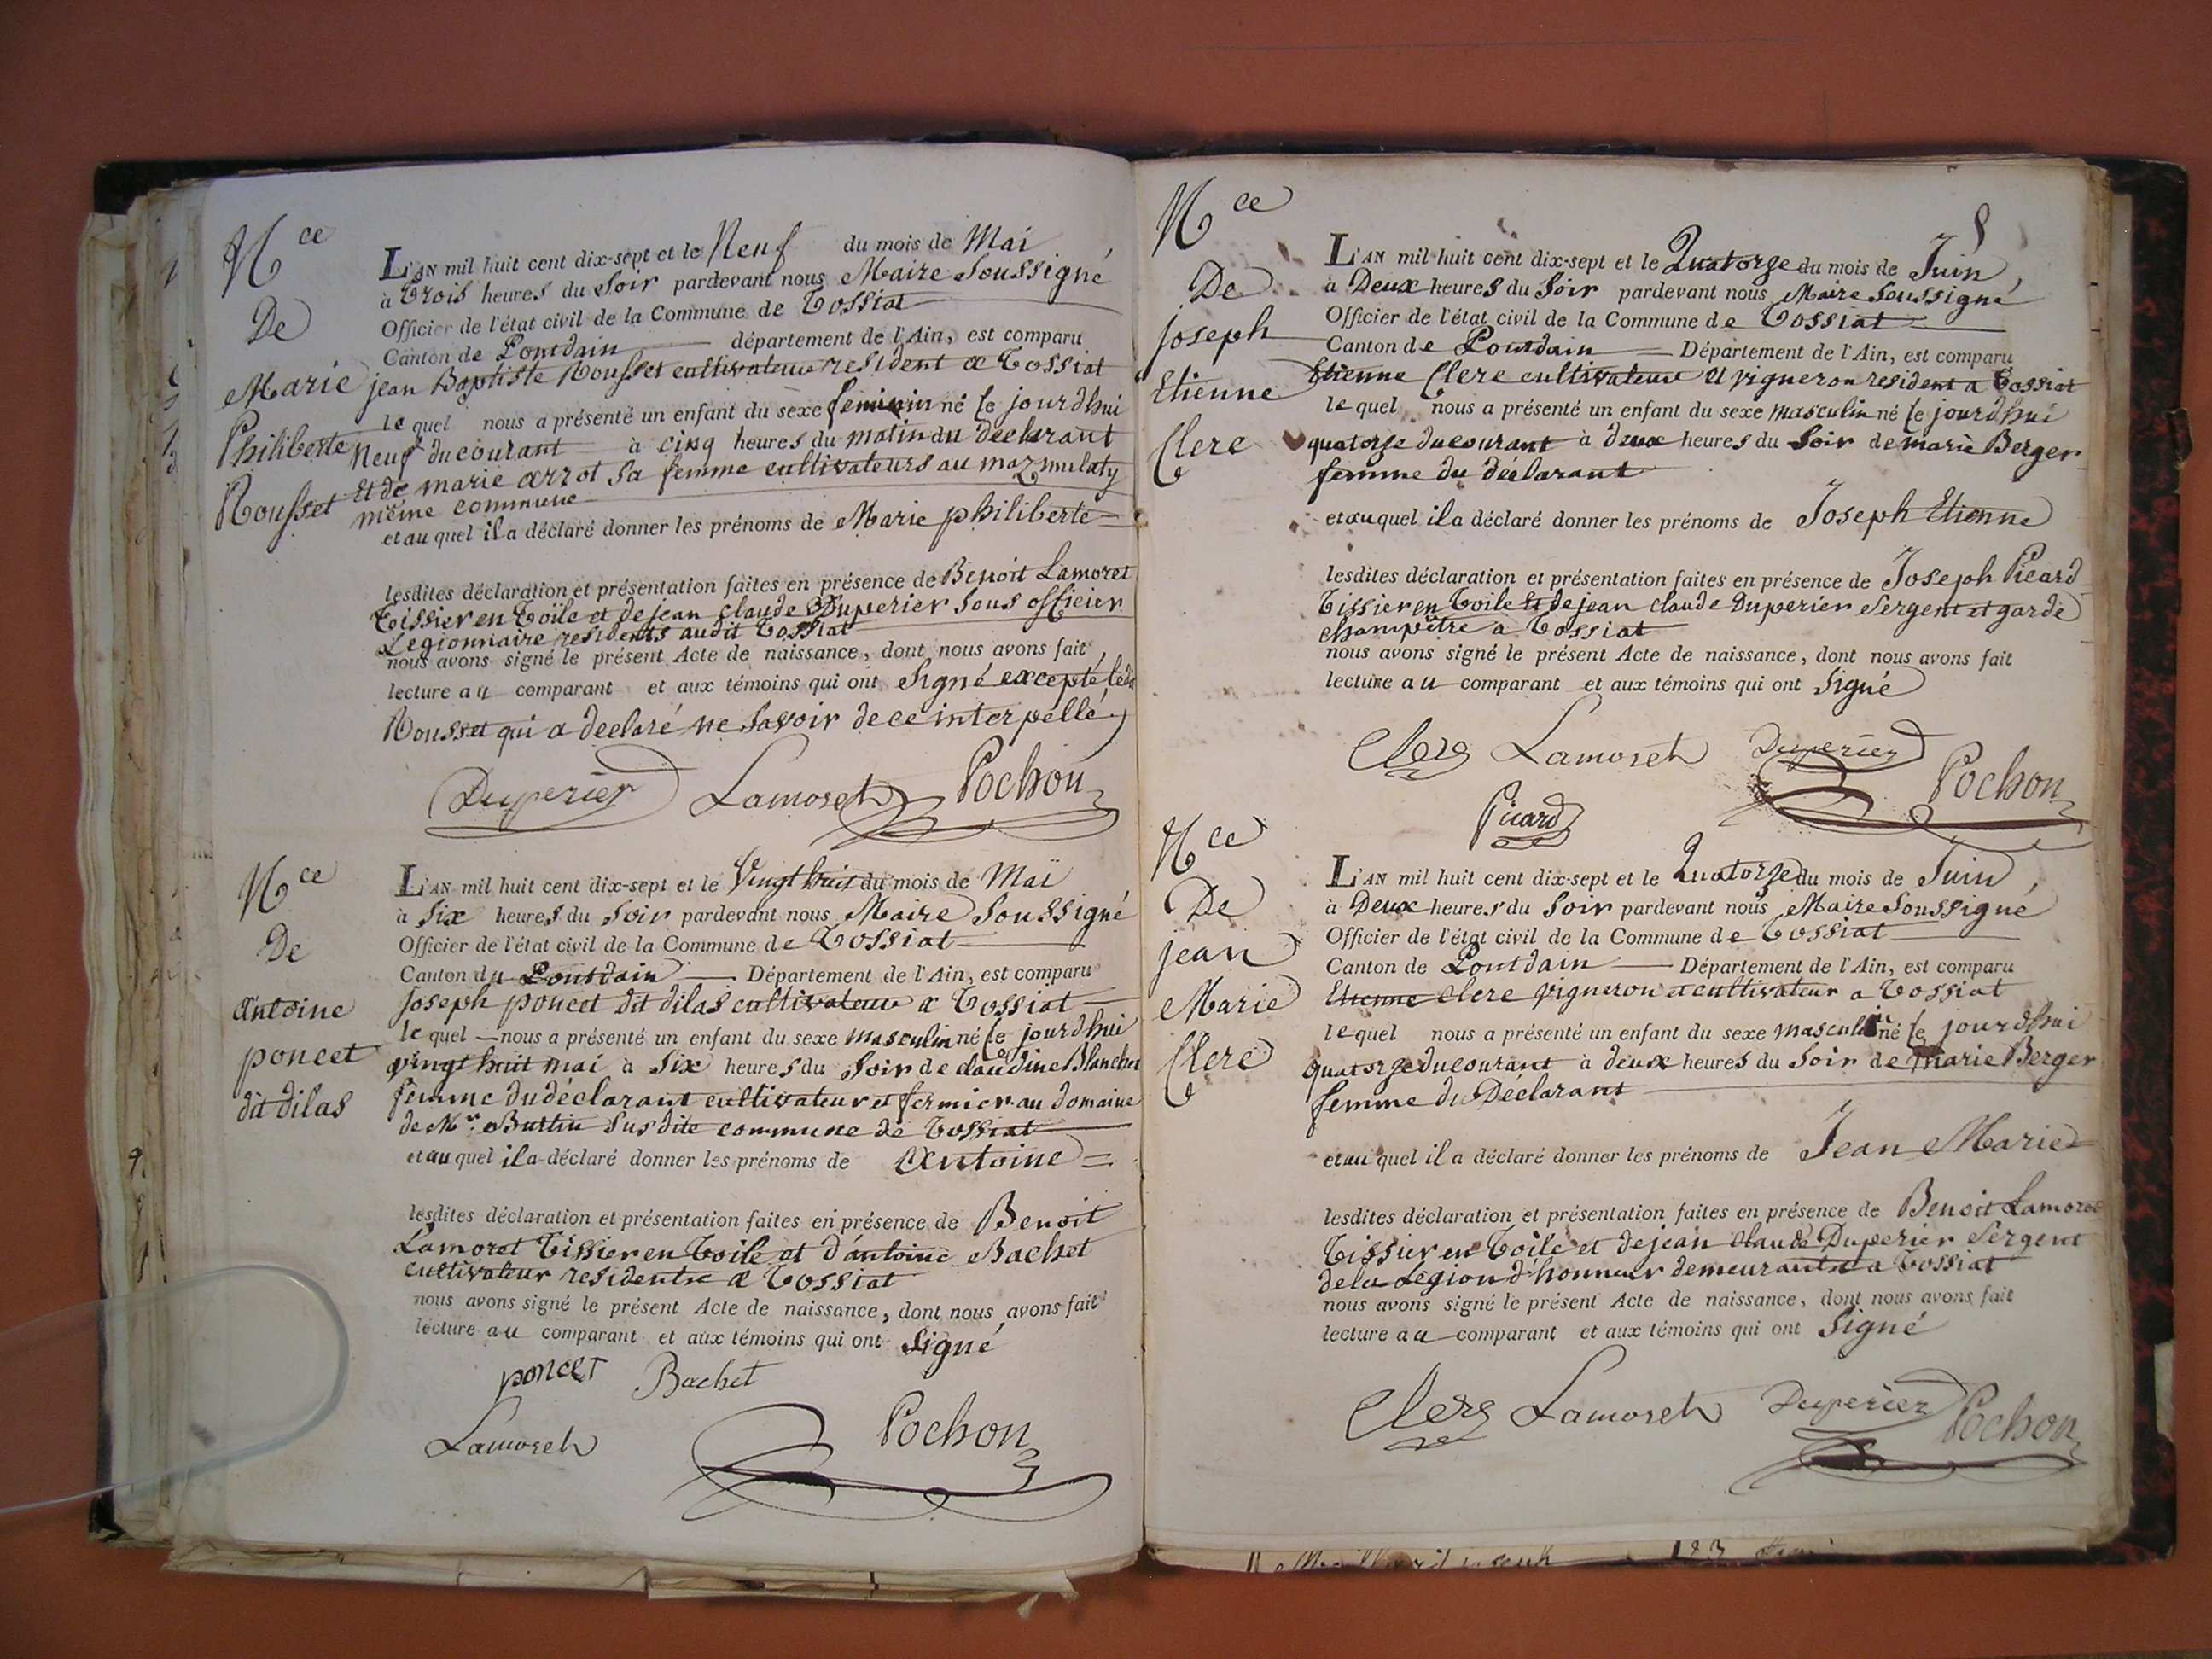 Nce
De
Marie
Philiberte
Rousset
L'AN mil huit cent dix-sept et le Neuf du mois de Mai
à Trois heures du Soir pardevant nous Maire Soussigné
Officier de l'état civil de la Commune de Tossiat
Canton de Pontdain département de l'Ain, est comparu
jean Baptiste Rousset cultivateur resident a Tossiat
lequel nous a présenté un enfant du sexe feminin né le jourdhui
Neuf du courant à cinq heures du matin du declarant
Et de marie arrot sa femme cultivateurs au maz mulaty
même commune
et au quel il a déclaré donner les prénoms de Marie philiberte =
lesdites déclaration et présentation faites en présence de Benoit Lamoret
Tissier en Toile et de jean claude Duperier Sous officier
Legionnaire residents audit Tossiat
nous avons signé le présent Acte de naissance, dont nous avons fait
lecture au comparant et aux témoins qui ont Signé excepté ledit
Rousset qui a declaré ne Savoir de ce interpellé
Duperier Lamoreth Pochon
Nce
De
Antoine
poncet
dit dilas
L'AN mil huit cent dix-sept et le Vingt huit du mois de Maï
à Six heures du Soir pardevant nous Maire Soussigné
Officier de l'état civil de la Commune de Tossiat
Canton du Pontdain Département de l'Ain, est comparu
Joseph poncet dit dilas cultivateur a Tossiat
lequel nous a présenté un enfant du sexe masculin né le jourdhui
vingt huit mai à Six heures du Soir de claudine Blanchet
femme du déclarant cultivateur et fermier au domaine
de Mr. Burtin Sus dite commune de Tossiat
et au quel il a déclaré donner les prénoms de Antoine =
lesdites déclaration et présentation faites en présence de Benoit
Lamoret Tissier en Toile et d'antoine Bachet
cultivateur residents a Tossiat
nous avons signé le présent Acte de naissance, dont nous avons fait
lecture au comparant et aux témoins qui ont Signé
poncet Bachet
Lamoreth Pochon
8
Nce
De
joseph
Etienne
Clerc
L'AN mil huit cent dix-sept et le Quatorze du mois de Juin
à Deux heures du Soir pardevant nous Maire Soussigné
Officier de l'état civil de la Commune de Tossiat
Canton de Pontdain Département de l'Ain, est comparu
Etienne Clerc cultivateur et vigneron resident a Tossiat
lequel nous a présenté un enfant du sexe masculin né le jourdhui
quatorze du courant à deux heures du Soir de marie Berger
femme du declarant
et au quel il a déclaré donner les prénoms de Joseph Etienne
lesdites déclaration et présentation faites en présence de Joseph Picard
Tissier en Toile et de jean claude Duperier Sergent et garde
champêtre a Tossiat
nous avons signé le présent Acte de naissance, dont nous avons fait
lecture au comparant et aux témoins qui ont Signé
Clerc Lamoreth Duperier Pochon
Picard
Nce
De
jean
Marie
Clerc
L'AN mil huit cent dix-sept et le Quatorze du mois de Juin
à Deux heures du Soir pardevant nous Maire Soussigné
Officier de l'état civil de la Commune de Tossiat
Canton de Pontdain Département de l'Ain, est comparu
Etienne Clerc vigneron et cultivateur a Tossiat
lequel nous a présenté un enfant du sexe masculin né le jourdhui
quatorze du courant à deux heures du Soir de marie Berger
femme du Déclarant
et au quel il a déclaré donner les prénoms de Jean Marie =
lesdites déclaration et présentation faites en présence de Benoit Lamoret
Tissier en Toile et de jean claude Duperier Sergent
de la Legion d'honneur demeurants a Tossiat
nous avons signé le présent Acte de naissance, dont nous avons fait
lecture au comparant et aux témoins qui ont Signé
Clerc Lamoreth Duperier Pochon